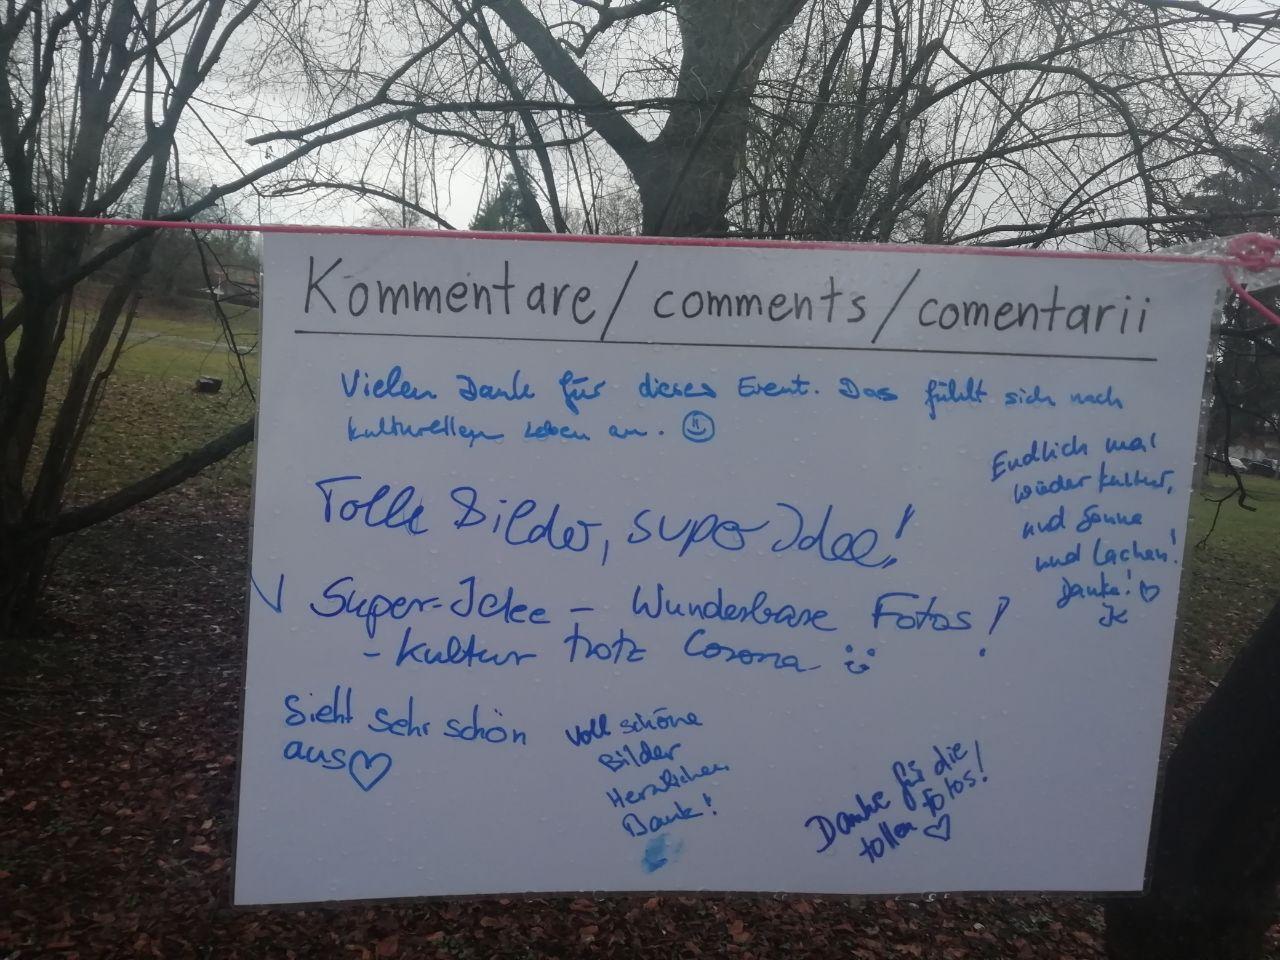 Kommentare/comments/comentarii
Vielen Dank für dieses Event. Das fühlt sich nach
kulturellem Leben an. ☺
Endlich mal
wieder Kultur,
und Sonne
und Lachen!
Danke! ♡
Tolle Bilder, super Idee!
Super-Idee – Wunderbare Fotos!
- Kultur trotz Corona
Sieht sehr schön
aus ♡
Voll schöne
Bilder
Herzlichen
Dank!
Danke für die
tollen Fotos!
♡